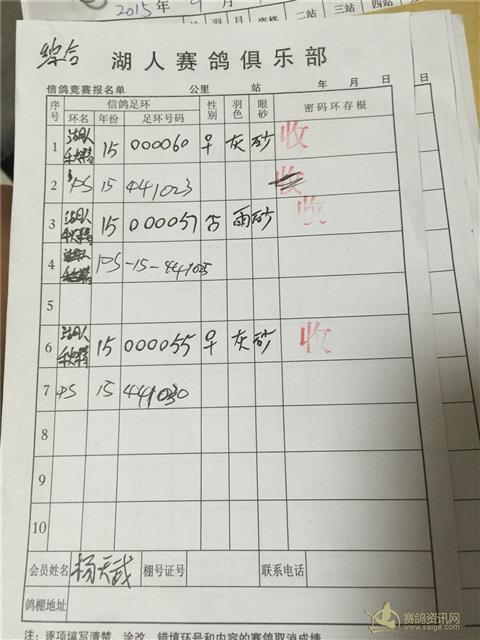 2015年 9 月
二站
综合
湖人赛鸽俱乐部
信鸽竞赛报名单 公里 站 年 月 日
序号 信鸽足环 性别 羽色 眼砂 密码环存根
环名 年份 足环号码
1 湖人 15 000060 ♀ 灰 砂 收
2 PS 15 441023 收
3 湖人 15 000057 雨 砂 收
4 PS-15-441025
5
6 湖人 15 000055 ♀ 灰 砂 收
7 PS 15 441030
8
9
10
会员姓名 杨天武 棚号证号 联系电话
鸽棚地址
注：逐项填写清楚，涂改、错填环号和内容的赛鸽取消成绩
赛鸽资讯网
www.saige.com